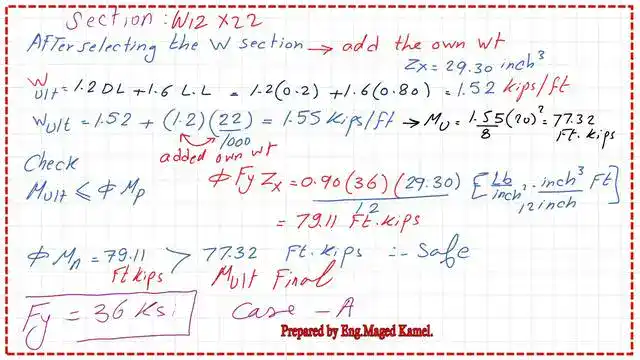 Section: W12 x22
After selecting the W section → add the own wt
Zx = 29.30 inch³
Wult = 1.2 DL + 1.6 L.L = 1.2(0.2) + 1.6(0.80) = 1.52 kips/ft
Wult = 1.52 + (1.2)(22)/1000 = 1.55 Kips/ft → Mu = 1.55/8 (20)² = 77.32 Ft. Kips
added own wt
Check
Mult ≤ φ Mp
φ Fy Zx = 0.90(36)(29.30)/12 [Lb/inch² · inch³/12 inch Ft]
= 79.11 Ft. Kips
φ Mn = 79.11 Ft Kips > 77.32 Ft. Kips ∴ Safe
Mult Final
Fy = 36 Ksi Case - A
Prepared by Eng.Maged Kamel.